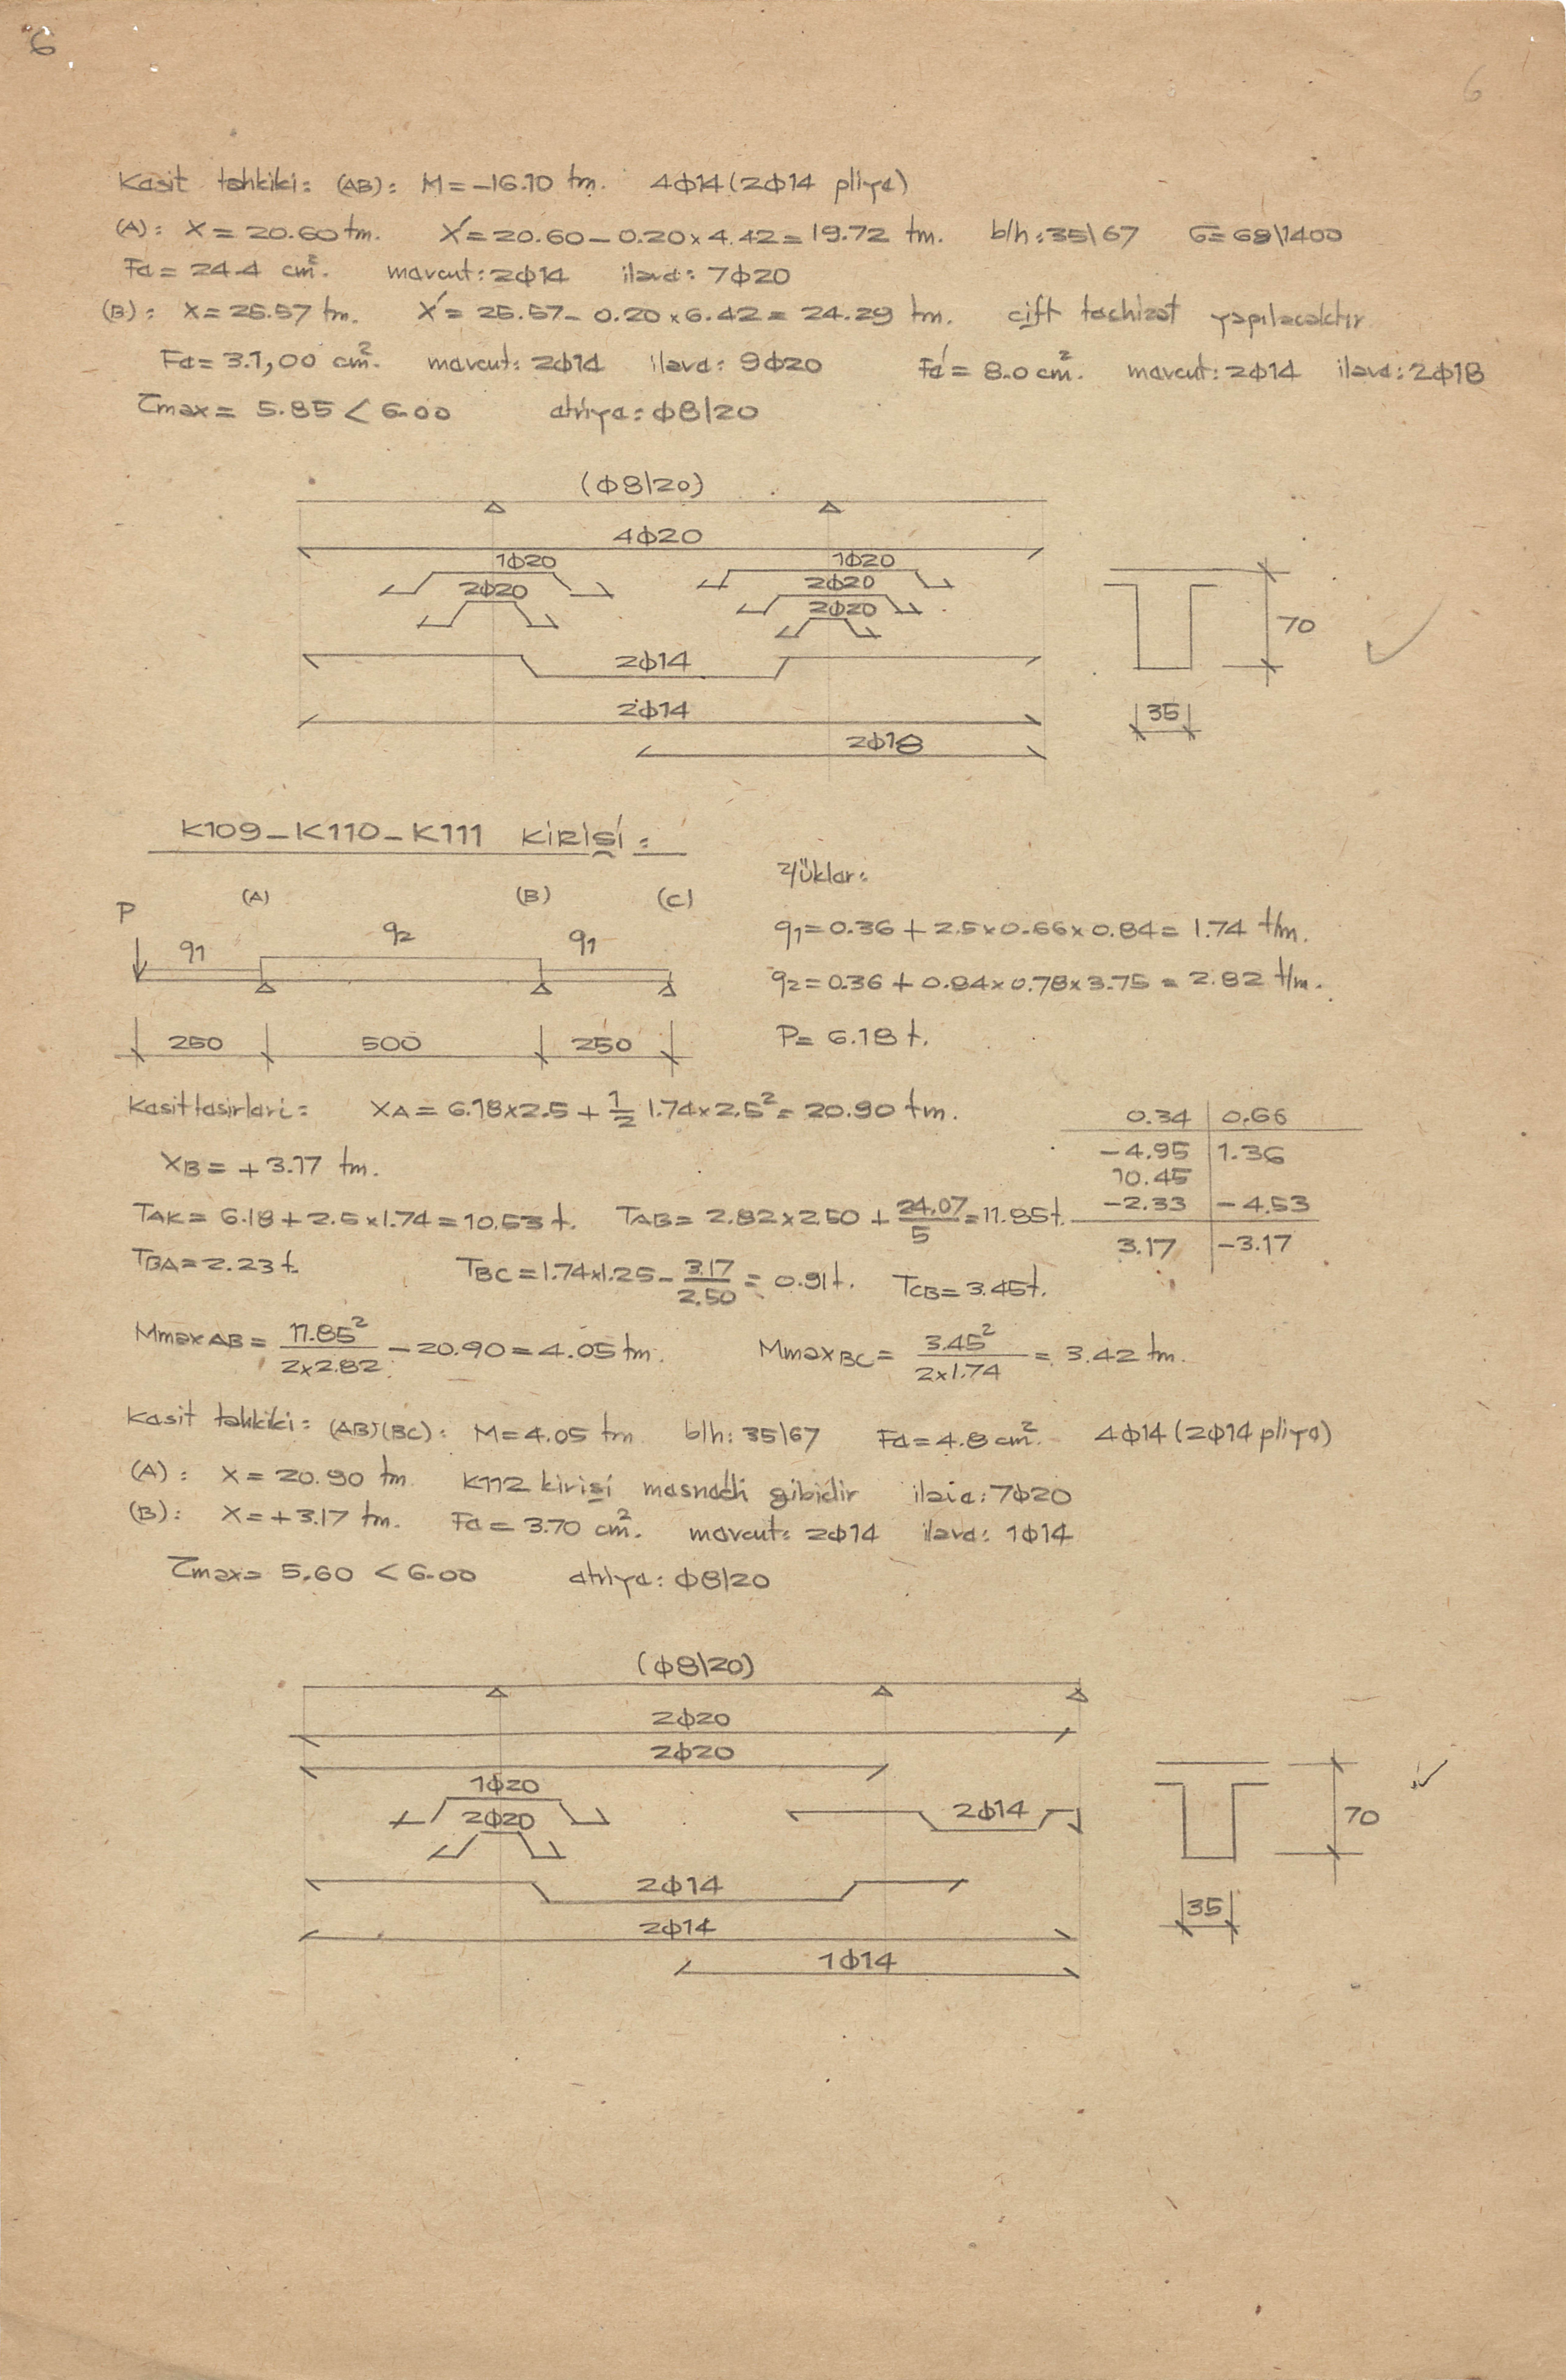 6
6
Kesit tahkiki: (AB): M = -16.10 tm. 4Φ14 (2Φ14 pliye)
(A): X = 20.60 tm. X' = 20.60 - 0.20 x 4.42 = 19.72 tm. b/h : 35\67 G = 69\1400
Fe = 24.4 cm². mevcut: 2Φ14 ilave: 7Φ20
(B): X = 25.57 tm. X' = 25.57 - 0.20 x 6.42 = 24.29 tm. çift teçhizat yapılacaktır
Fe = 31,00 cm². mevcut: 2Φ14 ilave: 9Φ20 Fe' = 8.0 cm². mevcut: 2Φ14 ilave: 2Φ18
τmax = 5.85 < 6.00 etriye: Φ8/20
(Φ8/20)
4Φ20
1Φ20 1Φ20
2Φ20 2Φ20
2Φ20
2Φ14
2Φ14
2Φ18
70
35
K109 - K110 - K111 KİRİŞİ :
(A) (B) (C)
P
q1 q2 q1
250 500 250
Yükler:
q1 = 0.36 + 2.5 x 0.66 x 0.84 = 1.74 t/m.
q2 = 0.36 + 0.84 x 0.78 x 3.75 = 2.82 t/m.
P = 6.18 t.
Kesit tesirleri: XA = 6.18 x 2.5 + 1/2 1.74 x 2.5² = 20.90 tm.
XB = + 3.17 tm.
0.34 | 0.66
-4.95 | 1.36
10.45
-2.33 | -4.53
3.17 | -3.17
TAK = 6.18 + 2.5 x 1.74 = 10.53 t. TAB = 2.82 x 2.50 + 24.07/5 = 11.85 t.
TBA = 2.23 t. TBC = 1.74 x 1.25 - 3.17/2.50 = 0.91 t. TCB = 3.45 t.
Mmax AB = 11.85²/2x2.82 - 20.90 = 4.05 tm. Mmax BC = 3.45²/2x1.74 = 3.42 tm.
Kesit tahkiki: (AB)(BC): M = 4.05 tm b/h: 35\67 Fe = 4.8 cm². 4Φ14 (2Φ14 pliye)
(A): X = 20.90 tm. K112 kirişi mesnedi gibidir ilave: 7Φ20
(B): X = + 3.17 tm. Fe = 3.70 cm². mevcut: 2Φ14 ilave: 1Φ14
τmax = 5.60 < 6.00 etriye: Φ8/20
(Φ8/20)
2Φ20
2Φ20
1Φ20
2Φ20 2Φ14
2Φ14
2Φ14
1Φ14
70
35